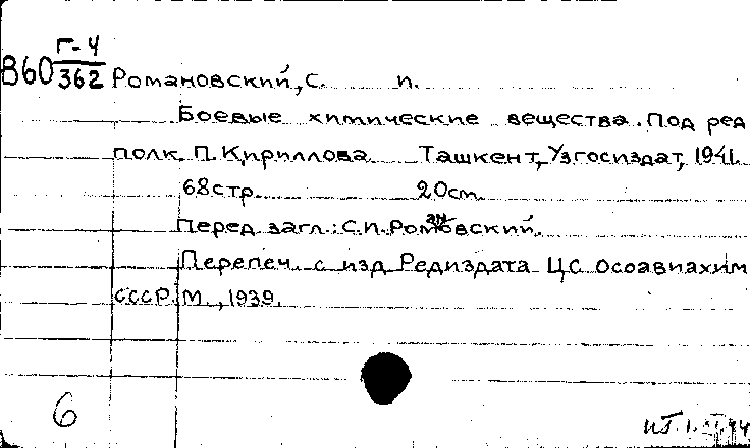 Г-4
В60 362 Романовский, С. П.
Боевые химические вещества. Под ред
полк. П. Кириллова Ташкент, Узгосиздат, 1941.
68 стр. 20 см.
Перед загл.: С.П. Романовский.
Перепеч. с изд Редиздата ЦС Осоавиахим
СССР. М., 1939.
6